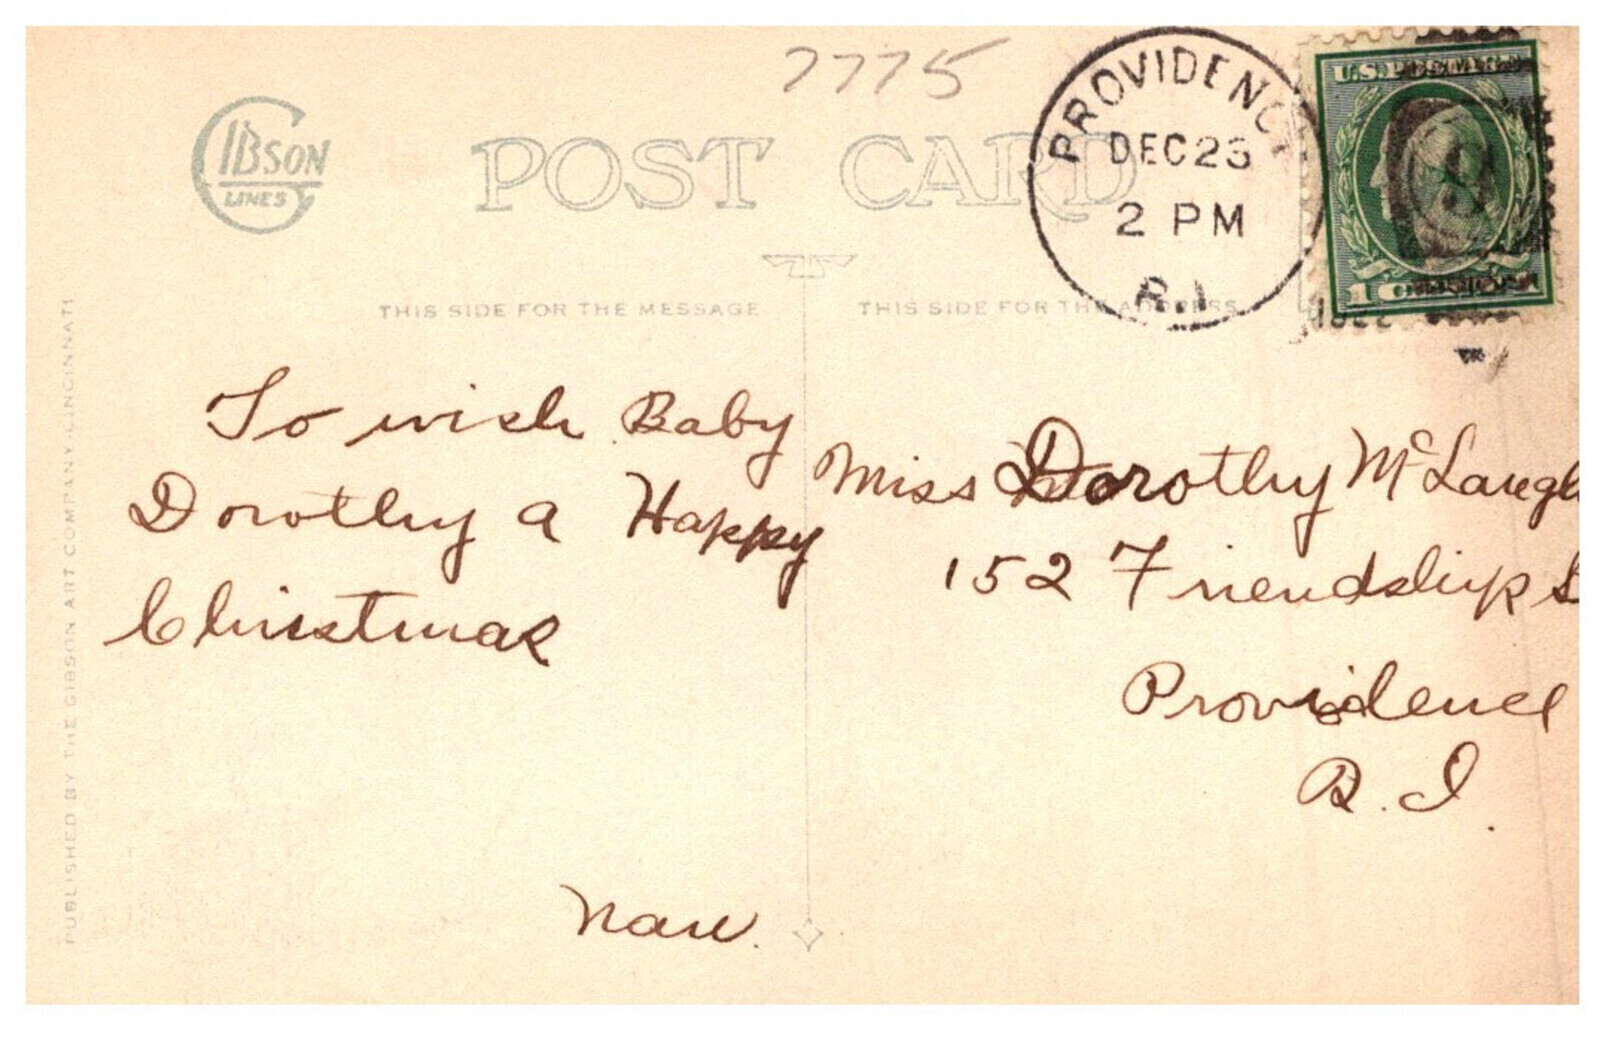 7775
GIBSON
LINES
POST CARD
PROVIDENCE
DEC 23
2 PM
R.I.
U.S. POSTAGE
1
THIS SIDE FOR THE MESSAGE
THIS SIDE FOR THE ADDRESS
To wish Baby
Dorothy a Happy
Christmas
Miss Dorothy McLaugh
152 Friendship S
Providence
R. I.
PUBLISHED BY THE GIBSON ART COMPANY, CINCINNATI